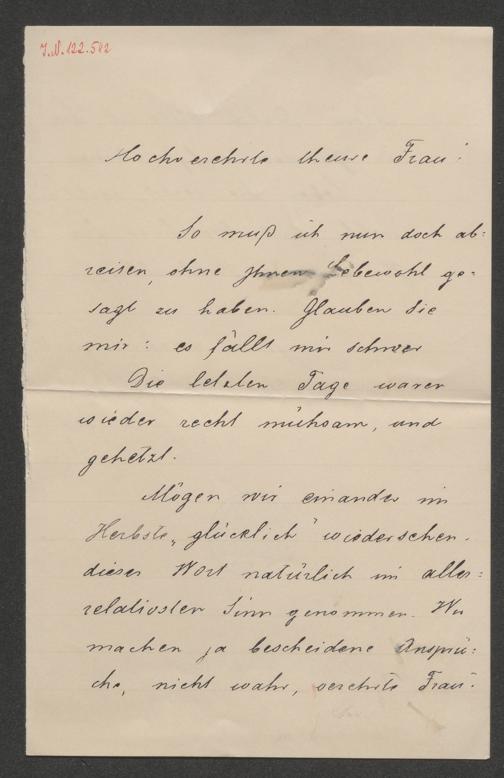 J.N. 122.502
Hochverehrte theure Frau!
So muß ich nun doch ab:
reisen, ohne Ihnen Lebewohl ge:
sagt zu haben. Glauben Sie
mir: es fällt mir schwer
Die letzten Tage waren
wieder recht mühsam, und
gehetzt.
Mögen wir einander im
Herbste „glücklich" wiedersehen.
dieses Wort natürlich im aller:
relativsten Sinn genommen. Wir
machen ja bescheidene Ansprü:
che, nicht wahr, verehrte Frau.